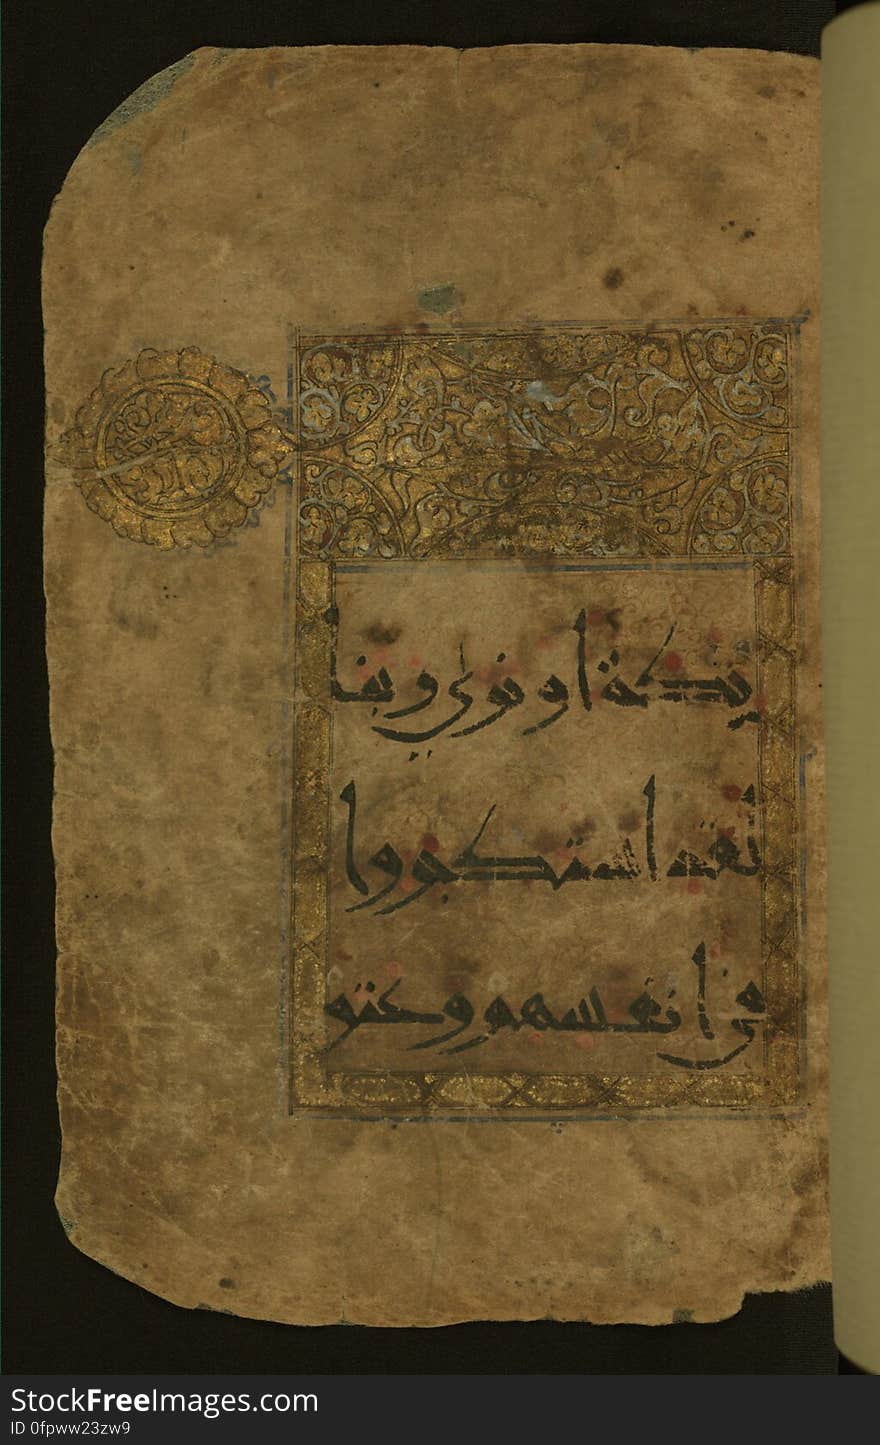 او نرى ربنا
لقد استكبروا
فى انفسهم وعتو
StockFreeImages.com
ID 0fpww23zw9